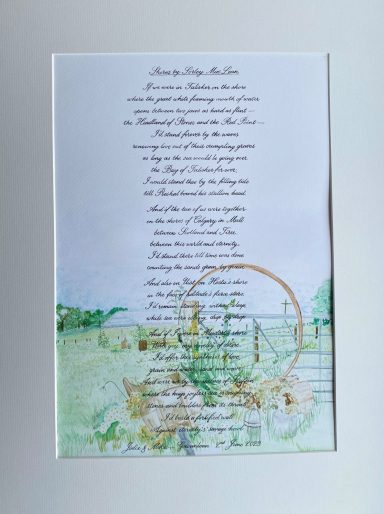 Shores by Sorley MacLean
If we were in Talisker on the shore
where the great white foaming mouth of water
opens between two jaws as hard as flint —
the Headland of Stones and the Red Point —
I'd stand forever by the waves
renewing love out of their crumpling graves
as long as the sea would be going over
the Bay of Talisker forever;
I would stand there by the filling tide
till Preshal bowed his stallion head.
And if the two of us were together
on the shores of Calgary in Mull
between Scotland and Tiree,
between this world and eternity,
I'd stand there till time was done
counting the sands grain by grain.
And also on Uist, on Hosta's shore,
in the face of solitude's fierce stare,
I'd remain standing, without sleep,
while sea were ebbing, drop by drop.
And if I were on Moidart's shore
with you, my novelty of desire,
I'd offer this synthesis of love,
grain and water, sand and wave.
And were we by the shelves of Staffin
where the huge joyless sea is coughing
stones and boulders from its throat,
I'd build a fortified wall
against eternity's savage howl.
Julie & 2nd June 2023